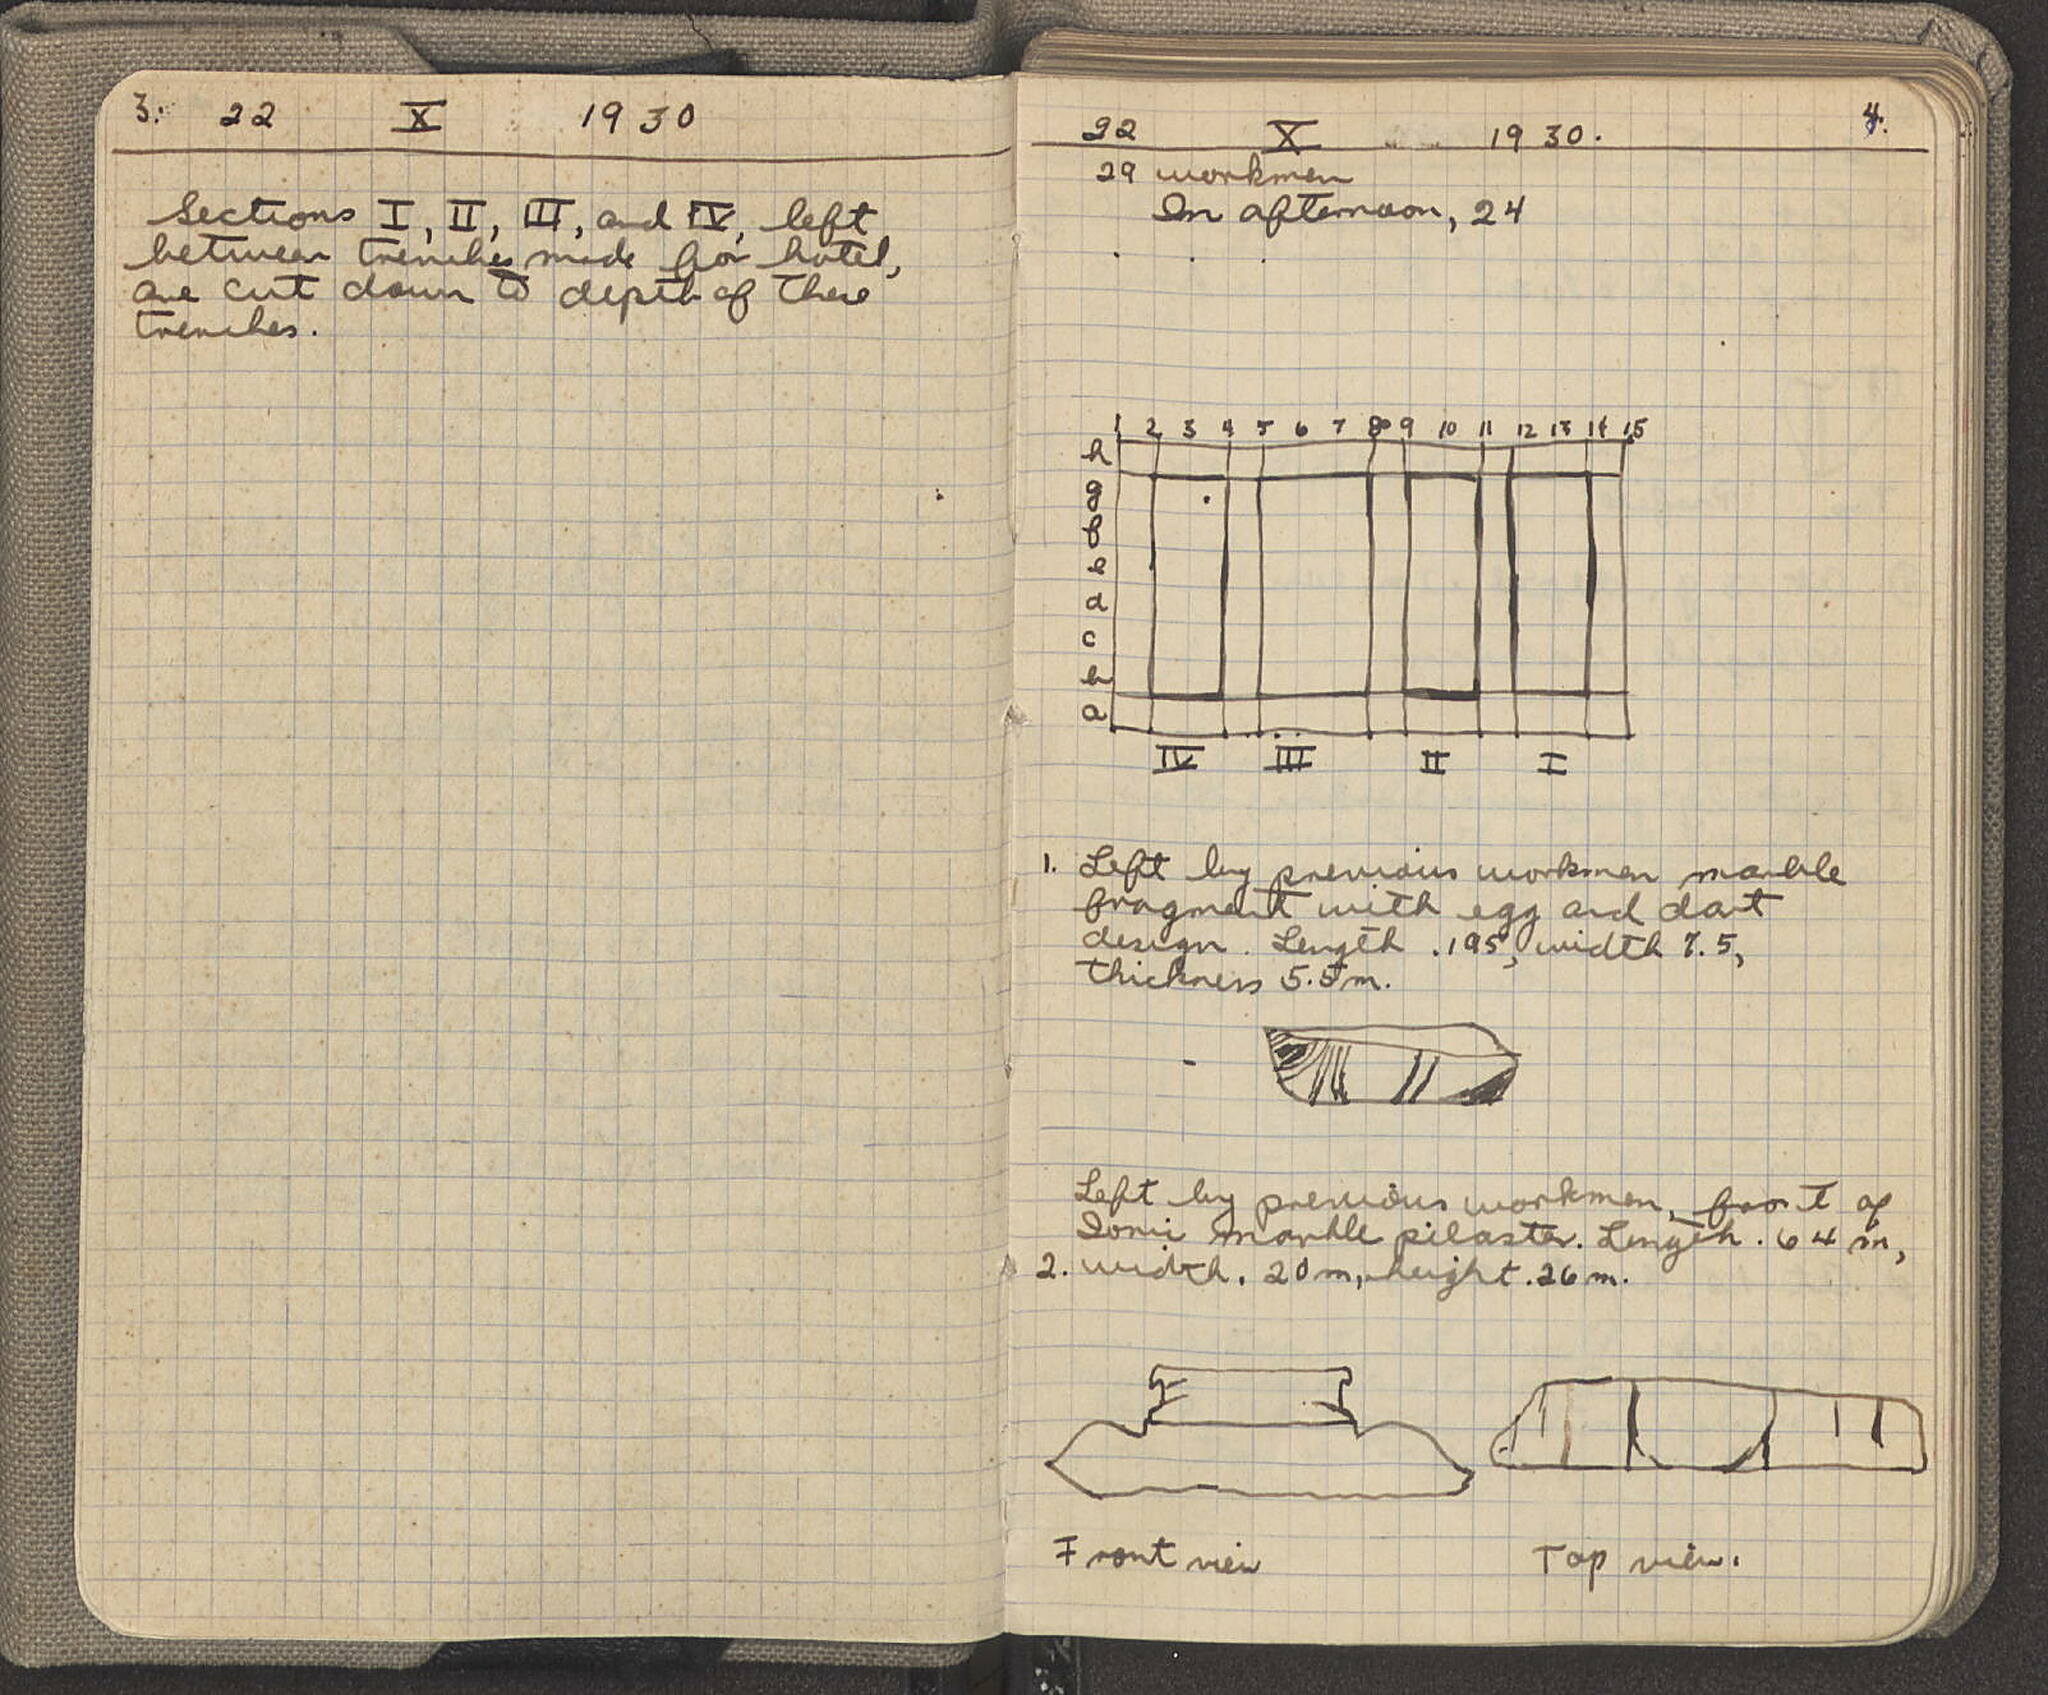 3. 22 X 1930
Sections I, II, III, and IV, left
between trenches made for hotel,
are cut down to depth of these
trenches.
22 X 1930. 4.
29 workmen
In afternoon, 24
1 2 3 4 5 6 7 8 9 10 11 12 13 14 15
h
g
f
e
d
c
b
a
IV III II I
1. Left by previous workmen marble
fragment with egg and dart
design. Length .195, width 7.5,
thickness 5.5 m.
Left by previous workmen, front of
Ionic marble pilaster. Length .64 m,
2. width .20 m, height .26 m.
Front view Top view.